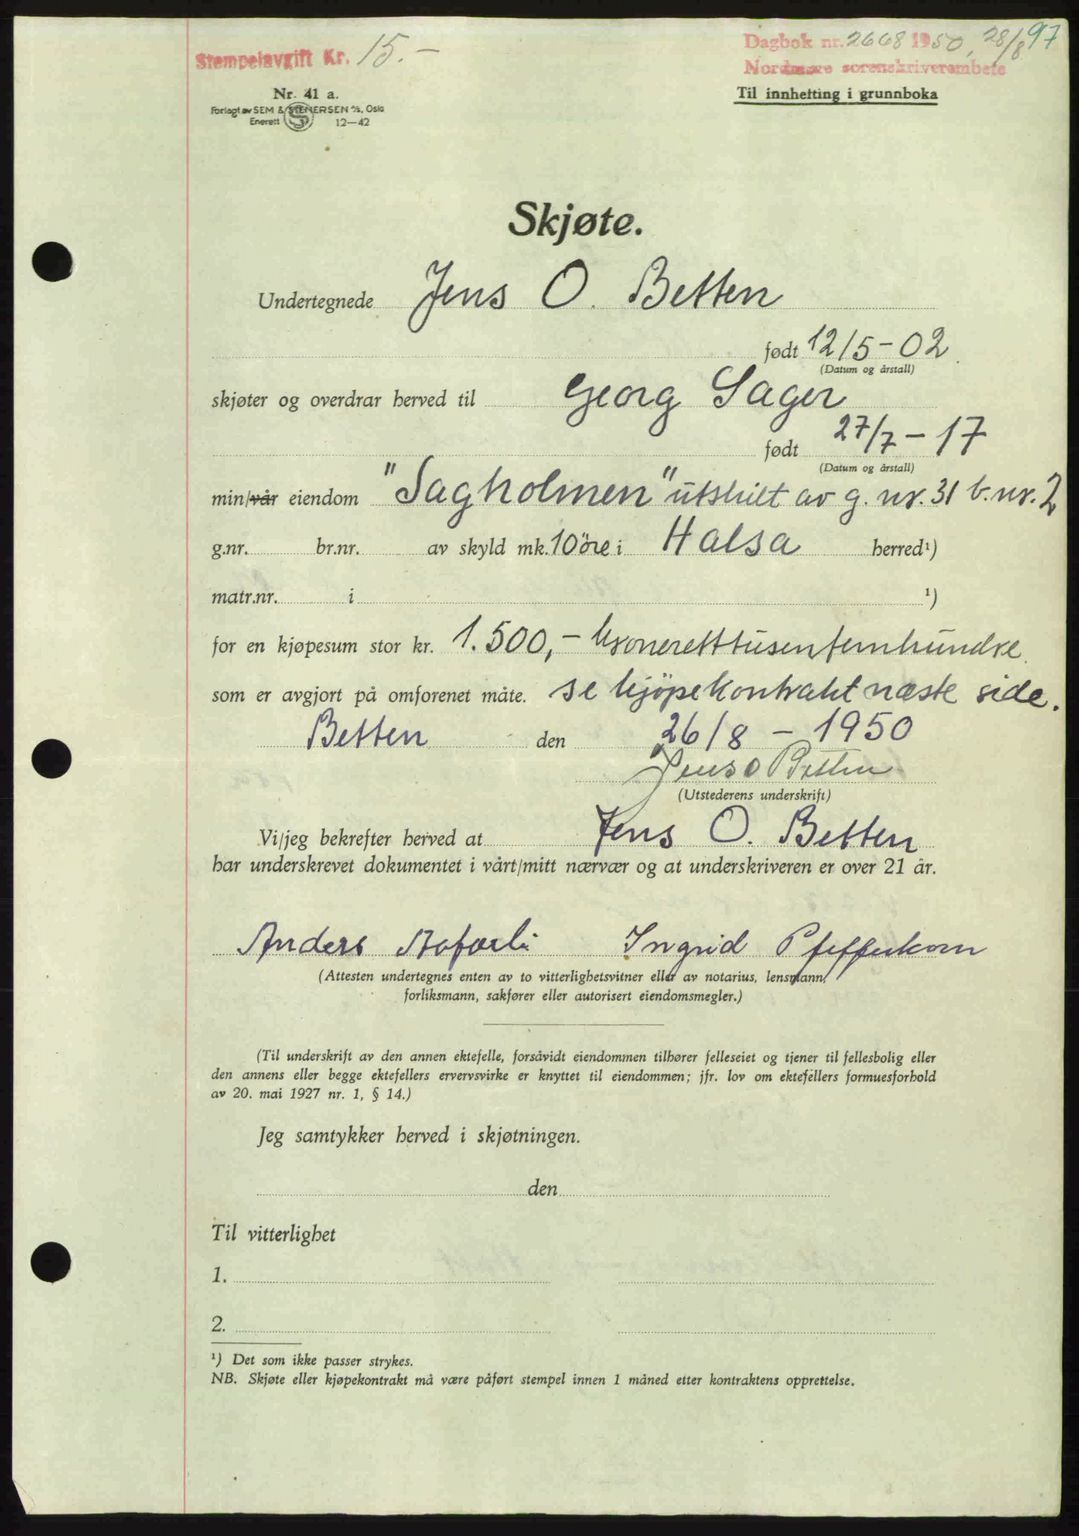 Stempelavgift Kr. 15.-
Dagbok nr. 2668 1950, 28/8 97
Nordmøre sorenskriverembete
Til innhefting i grunnboka
Nr. 41 a.
Forlagt av SEM & STENERSEN A/S, Oslo
Enerett S 12—42
Skjøte.
Undertegnede Jens O. Betten
født 12/5-02
(Datum og årstall)
skjøter og overdrar herved til Georg Sager
født 27/7-17
(Datum og årstall)
min/vår eiendom "Sagholmen" utskilt av g. nr. 31 b. nr. 2
g.nr. br.nr. av skyld mk. 10 öre i Halsa herred¹)
matr.nr. i ¹)
for en kjøpesum stor kr. 1.500,- kronerettusenfemhundre
som er avgjort på omforenet måte. se kjöpekontrakt næste side.
Betten den 26/8 - 1950
Jens O Betten
(Utstederens underskrift)
Vi/jeg bekrefter herved at Jens O. Betten
har underskrevet dokumentet i vårt/mitt nærvær og at underskriveren er over 21 år.
Anders Ingrid Pfefferkorn
(Attesten undertegnes enten av to vitterlighetsvitner eller av notarius, lensmann,
forliksmann, sakfører eller autorisert eiendomsmegler.)
(Til underskrift av den annen ektefelle, forsåvidt eiendommen tilhører felleseiet og tjener til fellesbolig eller
den annens eller begge ektefellers ervervsvirke er knyttet til eiendommen; jfr. lov om ektefellers formuesforhold
av 20. mai 1927 nr. 1, § 14.)
Jeg samtykker herved i skjøtningen.
den
Til vitterlighet
1.
2.
¹) Det som ikke passer strykes.
NB. Skjøte eller kjøpekontrakt må være påført stempel innen 1 måned etter kontraktens opprettelse.